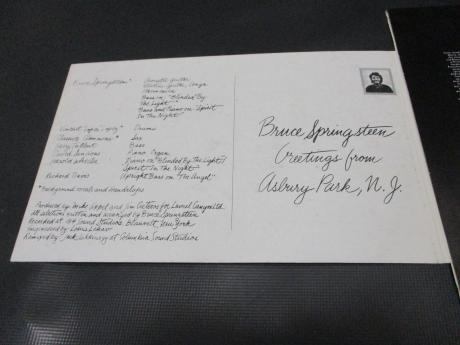 Bruce Springsteen*
Acoustic Guitar
Electric Guitar, Congas
Harmonica
Bass on "Blinded By
The Light"
Bass and Piano on "Spirit
In The Night"
Vincent Lopez* Drums
Clarence Clemmons* Sax
Garry Tallent Bass
David Sancious Piano, Organ
Harold Wheeler Piano on "Blinded By The Light"/
Spirit In The Night"
Richard Davis Upright Bass on "The Angel"
*Background vocals and Handclaps
Produced by Mike Appel and Jim Cretecos for Laurel Canyon Ltd.
All selections written and arranged by Bruce Springsteen
Recorded at 914 Sound Studios, Blauvelt, New York
Engineered by Louis Lahav
Remixed by Jack Ashkinazy at Columbia Sound Studios
Bruce Springsteen
Greetings from
Asbury Park, N.J.